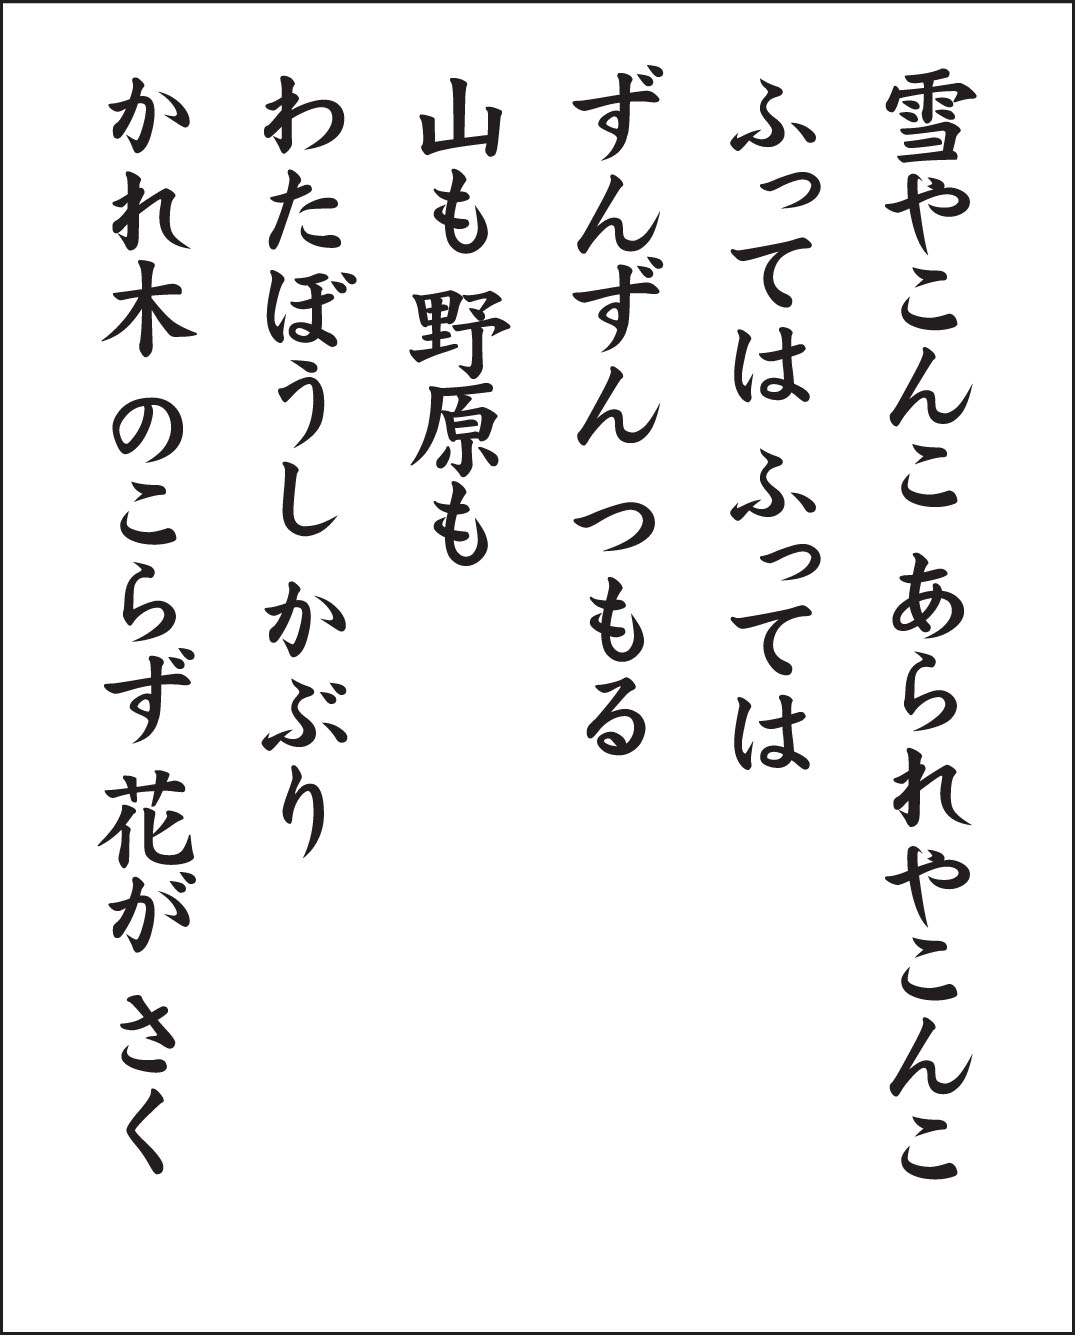 雪やこんこ あられやこんこ
ふっては ふっては
ずんずん つもる
山も 野原も
わたぼうし かぶり
かれ木 のこらず 花が さく